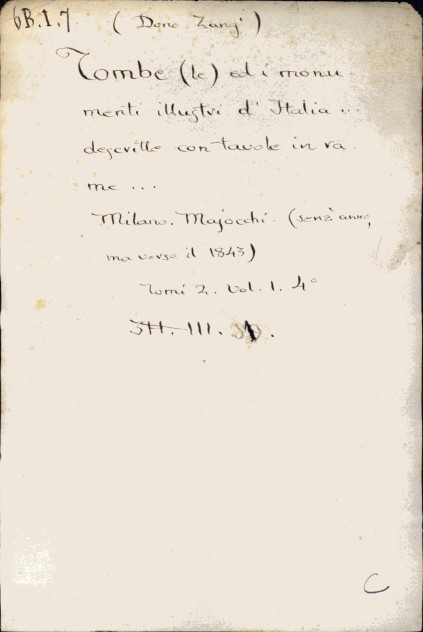 6B.I.7 (Dono Zangi)
Tombe (le) ed i monu
menti illustri d'Italia ...
descritte con tavole in ra
me ...
Milano. Majocchi. (senz'anno,
ma verso il 1843)
Tomi 2. Vol. 1. 4°
III.
C